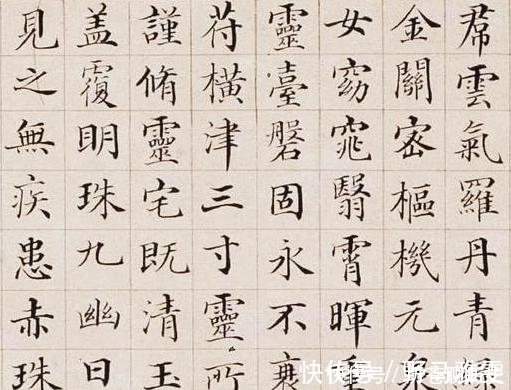 帬雲氣羅丹青
金關密樞機元
女窈窕翳霄暉重
靈臺磐固永不衰
苻橫津三寸靈所
謹脩靈宅既清玉
盖覆明珠九幽日
見之無疾患赤珠
快传号/